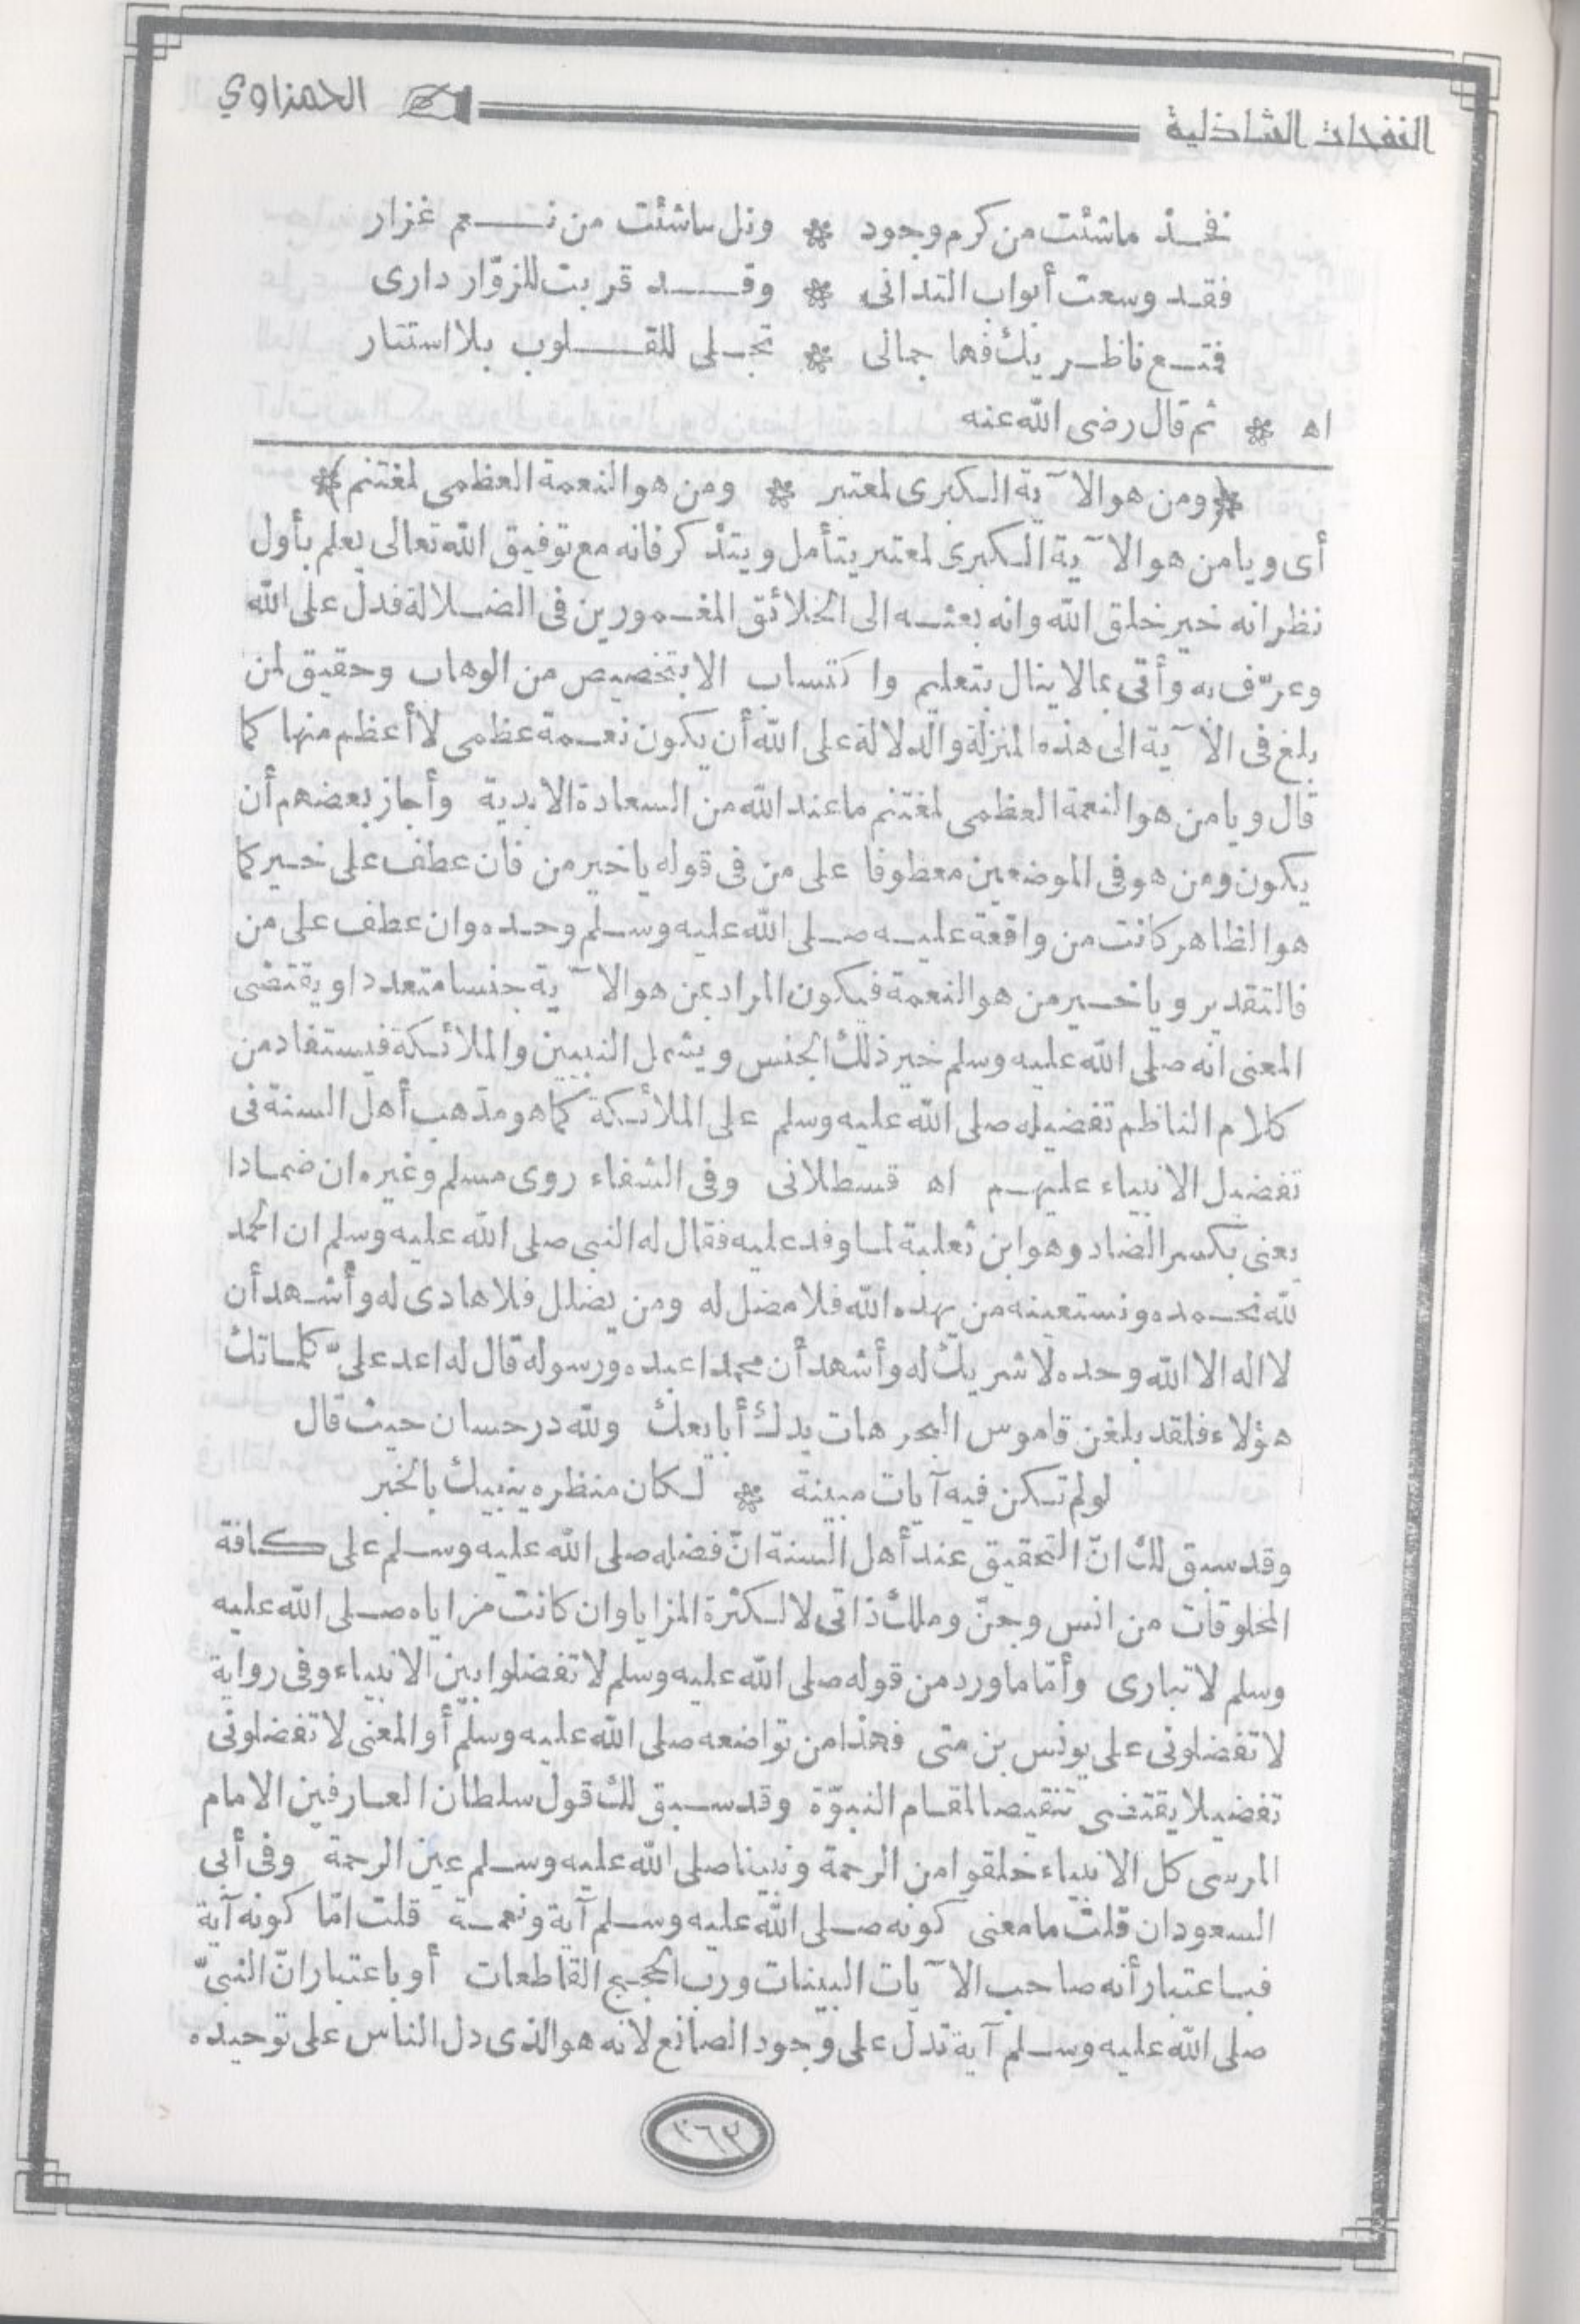 النفحات الشاذلية الحمزاوي
فخذ ماشئت من كرم وجود * ونل ماشئت من نعم غزار
فقد وسعت أبواب التدانى * وقد قربت للزوّار دارى
فمتع ناظريك فها جمالى * تجلى للقلوب بلا استتار
اه * ثم قال رضى الله عنه
*(ومن هو الآية الكبرى لمعتبر * ومن هو النعمة العظمى لمغتنم)*
أى ويا من هو الآية الكبرى لمعتبر يتأمل ويتذكر فانه مع توفيق الله تعالى يعلم بأول
نظر انه خير خلق الله وانه بعثه الى الخلائق المغمورين فى الضلالة فدل على الله
وعرّف به وأتى بما لا ينال بتعليم واكتساب الا بتخصيص من الوهاب وحقيق لمن
بلغ فى الآية الى هذه المنزلة والدلالة على الله أن يكون نعمة عظمى لا أعظم منها كما
قال ويا من هو النعمة العظمى لمغتنم ما عند الله من السعادة الابدية وأجاز بعضهم أن
يكون ومن هو فى الموضعين معطوفا على من فى قوله يا خير من فان عطف على خير كما
هو الظاهر كانت من واقعة عليه صلى الله عليه وسلم وحده وان عطف على من
فالتقدير ويا خير من هو النعمة فيكون المراد بمن هو الآية جنسا متعددا ويقتضى
المعنى انه صلى الله عليه وسلم خير ذلك الجنس ويشمل النبيين والملائكة فيستفاد من
كلام الناظم تفضيله صلى الله عليه وسلم على الملائكة كما هو مذهب أهل السنة فى
تفضيل الانبياء عليهم اه قسطلانى وفى الشفاء روى مسلم وغيره ان ضمادا
يعنى بكسر الضاد وهو ابن ثعلبة لما وفد عليه فقال له النبى صلى الله عليه وسلم ان الحمد
لله نحمده ونستعينه من يهده الله فلا مضل له ومن يضلل فلا هادى له وأشهد أن
لا اله الا الله وحده لا شريك له وأشهد أن محمدا عبده ورسوله قال له اعد علىّ كلماتك
هؤلاء فلقد بلغن قاموس البحر هات يدك أبايعك ولله در حسان حيث قال
لو لم تكن فيه آيات مبينة * لكان منظره ينبيك بالخبر
وقد سبق لك انّ التحقيق عند أهل السنة انّ فضله صلى الله عليه وسلم على كافة
المخلوقات من انس وجنّ وملك ذاتى لا لكثرة المزايا وان كانت مزاياه صلى الله عليه
وسلم لا تبارى وأمّا ما ورد من قوله صلى الله عليه وسلم لا تفضلوا بين الانبياء وفى رواية
لا تفضلونى على يونس بن متى فهذا من تواضعه صلى الله عليه وسلم أو المعنى لا تفضلونى
تفضيلا يقتضى تنقيصا لمقام النبوّة وقد سبق لك قول سلطان العارفين الامام
المرسى كل الانبياء خلقوا من الرحمة ونبينا صلى الله عليه وسلم عين الرحمة وفى أبى
السعود ان قلت ما معنى كونه صلى الله عليه وسلم آية ونعمة قلت امّا كونه آية
فباعتبار أنه صاحب الآيات البينات ورب الحجج القاطعات أو باعتبار انّ النبىّ
صلى الله عليه وسلم آية تدل على وجود الصانع لانه هو الذى دل الناس على توحيده
٣٦٣